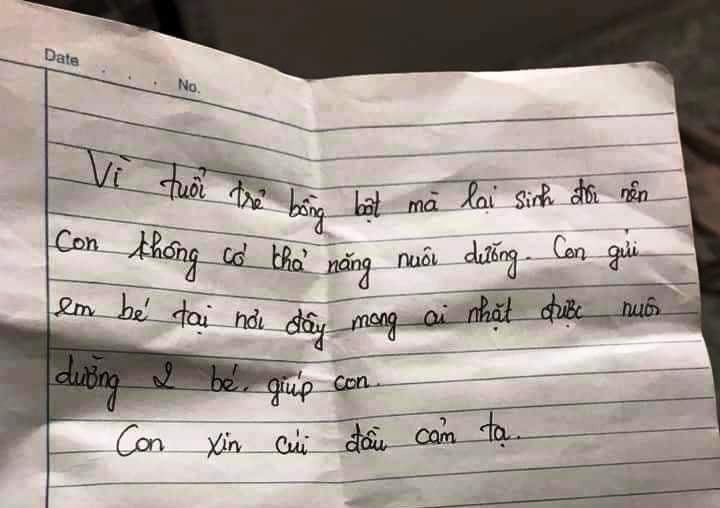 Date . . . No.
Vì tuổi trẻ bồng bột mà lại sinh đôi nên
Con không có khả năng nuôi dưỡng. Con gửi
em bé tại nơi đây mong ai nhặt được nuôi
dưỡng 2 bé. giúp con.
Con xin cúi đầu cảm tạ.